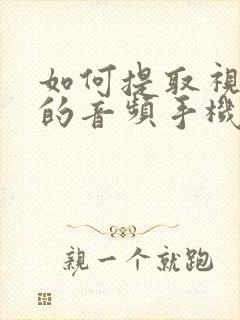 如何提取視
的音頻手機
親一个就跑